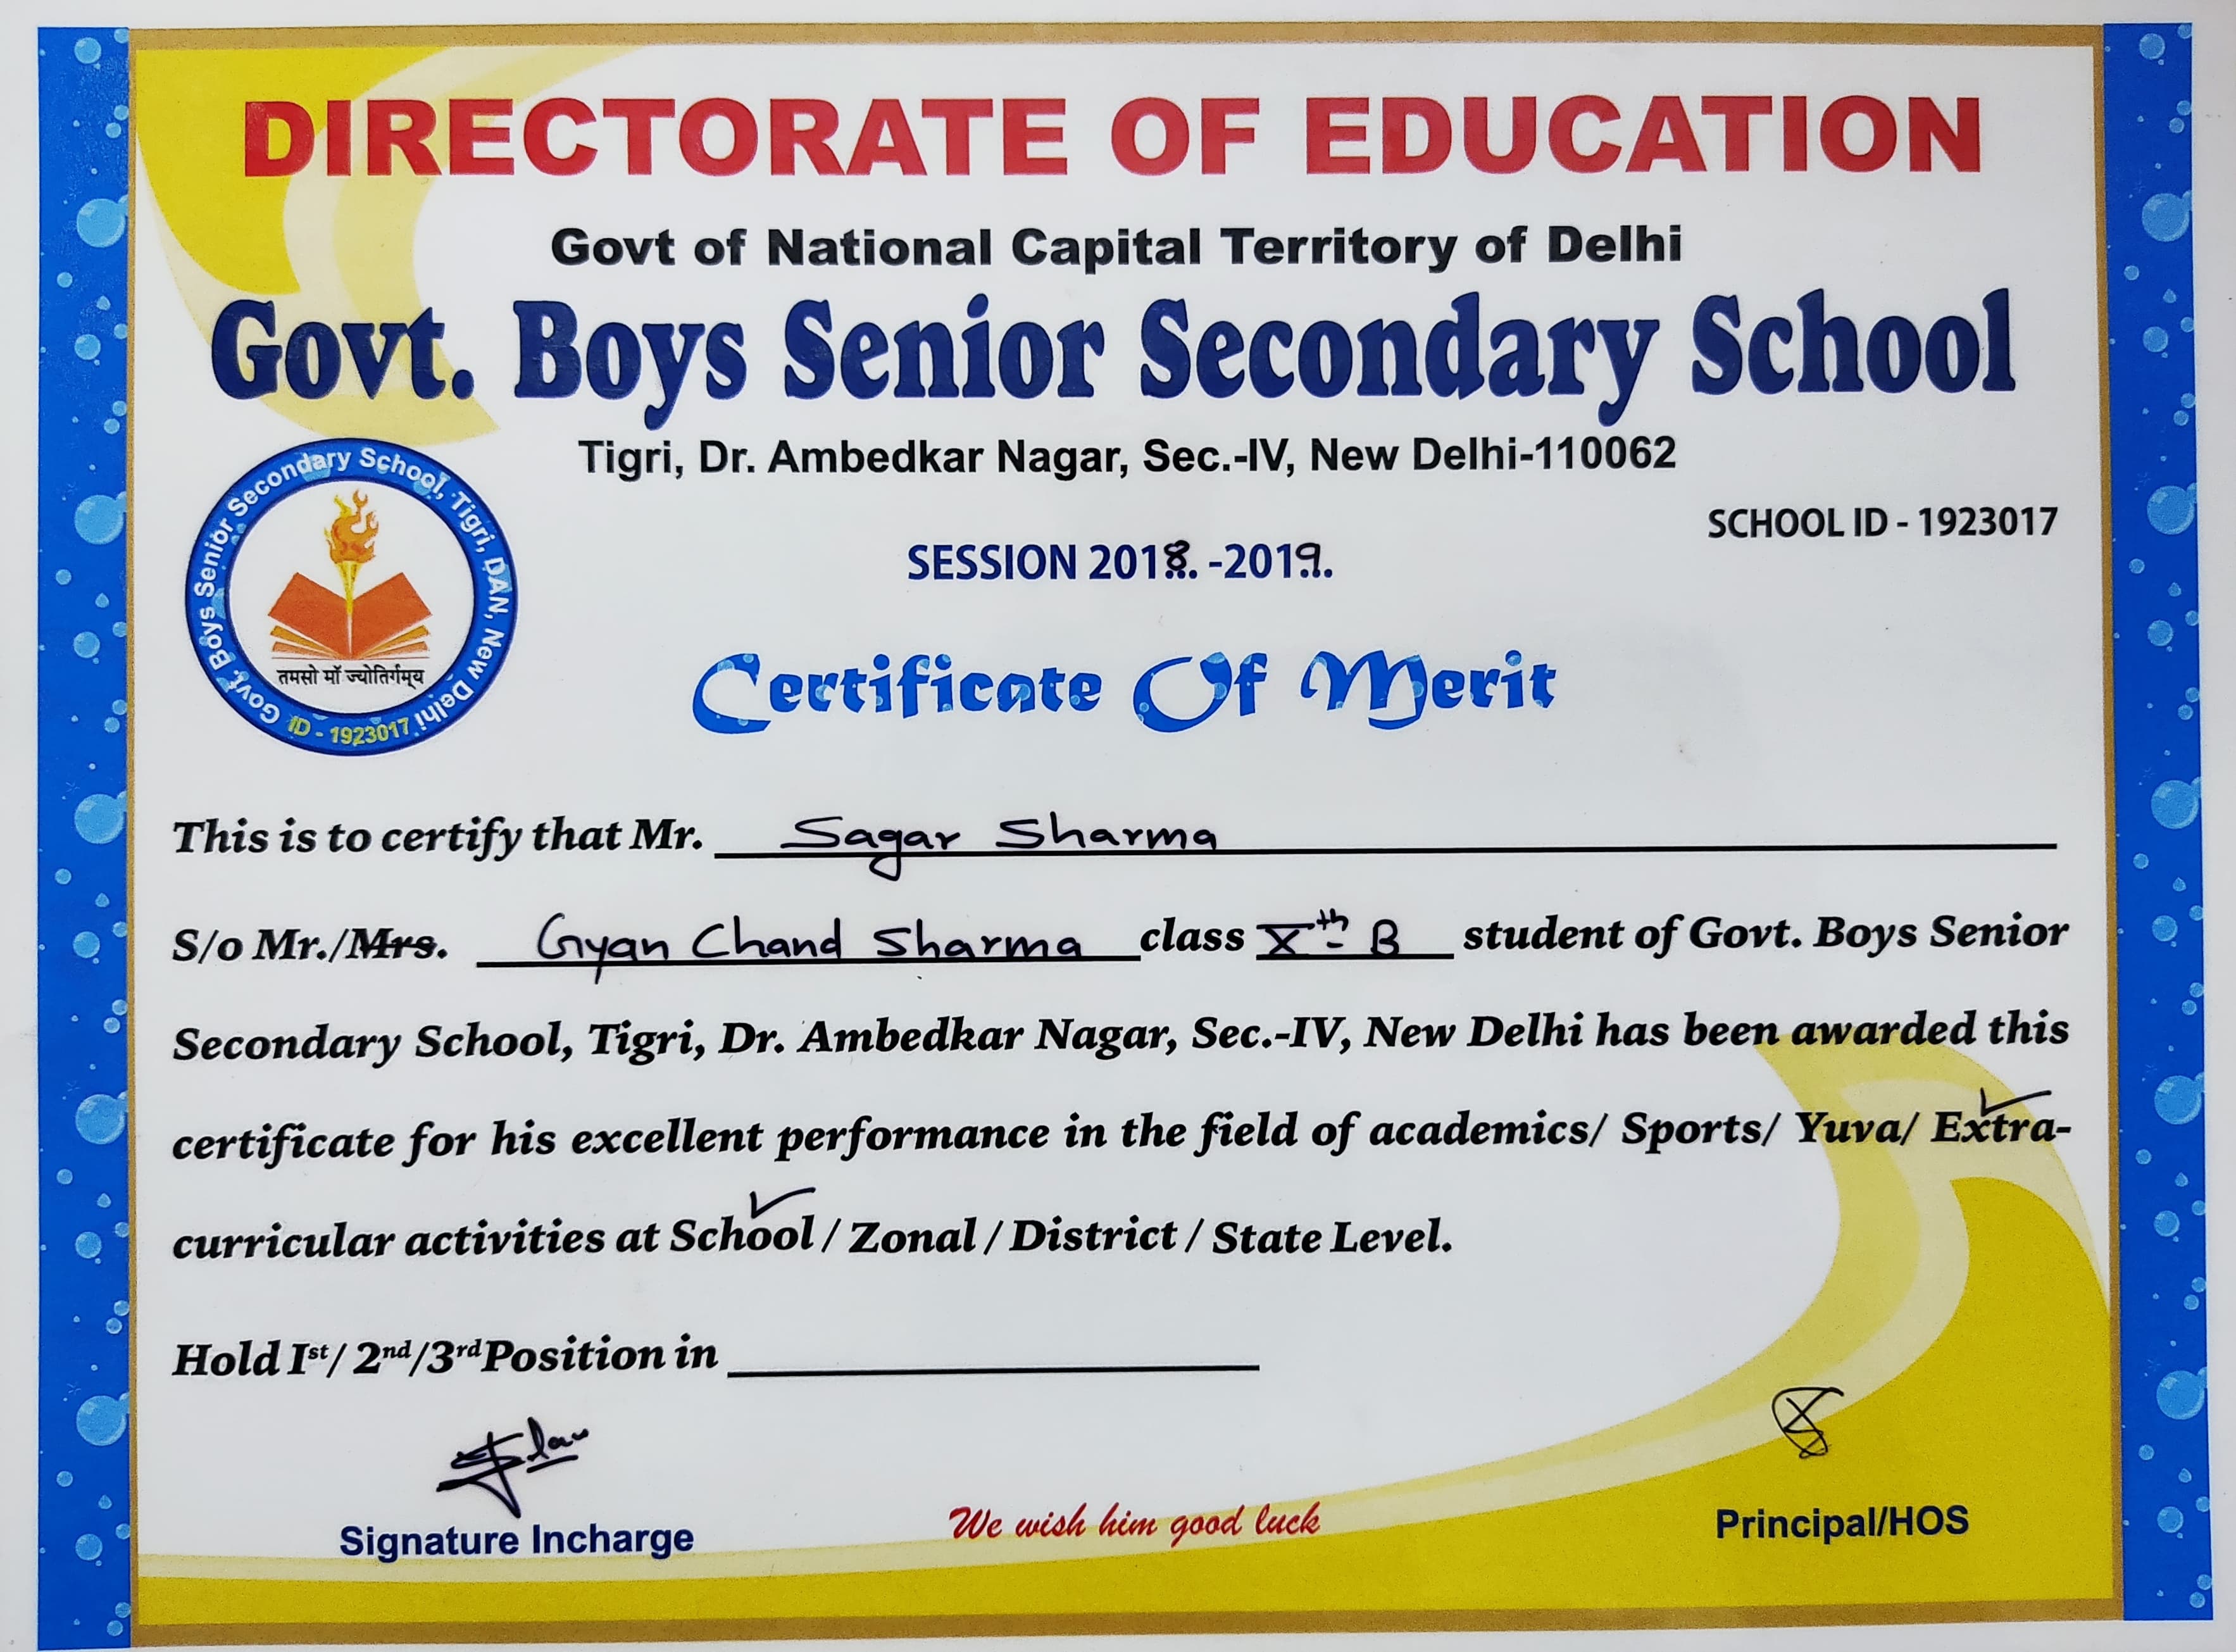 DIRECTORATE OF EDUCATION
Govt of National Capital Territory of Delhi
Govt. Boys Senior Secondary School
Tigri, Dr. Ambedkar Nagar, Sec.-IV, New Delhi-110062
SCHOOL ID - 1923017
SESSION 2018. -2019.
Govt. Boys Senior Secondary School, Tigri, DAN, New Delhi
तमसो मॉ ज्योतिर्गमय
ID - 1923017
Certificate Of Merit
This is to certify that Mr. Sagar Sharma
S/o Mr./Mrs. Gyan Chand Sharma class Xth B student of Govt. Boys Senior
Secondary School, Tigri, Dr. Ambedkar Nagar, Sec.-IV, New Delhi has been awarded this
certificate for his excellent performance in the field of academics/ Sports/ Yuva/ Extra-
curricular activities at School / Zonal / District / State Level.
Hold Ist/ 2nd/3rd Position in
Signature Incharge
We wish him good luck
Principal/HOS